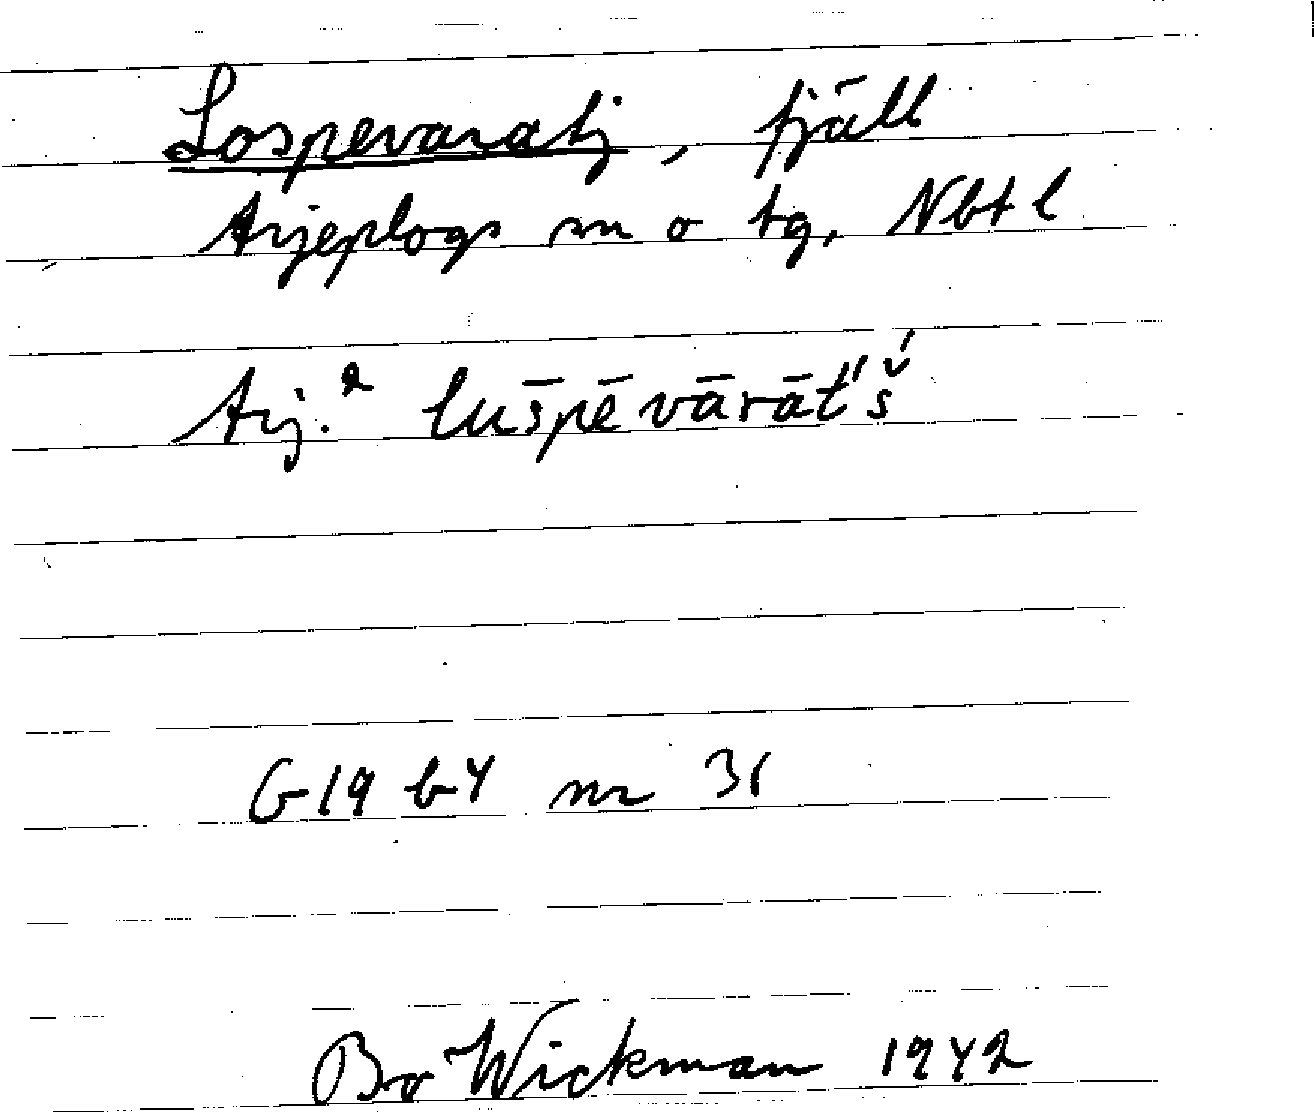 Lospevaratj, fjäll
Arjeplogs sn o tg, Nbt l
Arj.² lus̄pē vārāt́'š́
G19 b4 nr 31
Bo Wickman 1942